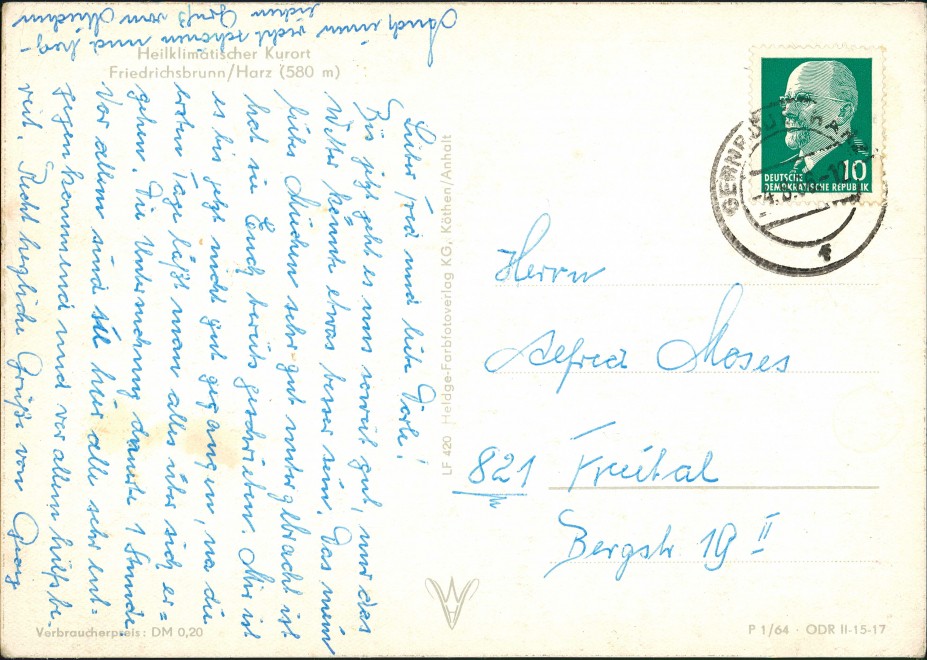 Heilklimatischer Kurort
Friedrichsbrunn/Harz (580 m)
Lieber Fred und liebe Dorle!
Bis jetzt geht es uns soweit gut, nur das
Wetter könnte etwas besser sein. Das mein
liebes Muchen sehr gut untergebracht ist
hat sie Euch bereits geschrieben. Mir ist
es bis jetzt recht gut gegangen, na die
ersten Tage läßt man alles über sich er=
gehen. Die Untersuchung dauerte 1 Stunde
Vor allem sind sie hier alle sehr ent=
gegenkommend und vor allem hilfsbe.
reit. Recht herzliche Grüße von Georg
Auch einen recht schönen und herz-
lichen Gruß vom Muchen
LF 420 Heldge-Farbfotoverlag KG, Köthen/Anhalt
Verbraucherpreis: DM 0,20
DEUTSCHE 10
DEMOKRATISCHE REPUBLIK
GERNRODE
Herrn
Alfred Moses
821 Freital
Bergstr 19 II
P 1/64 · ODR II-15-17